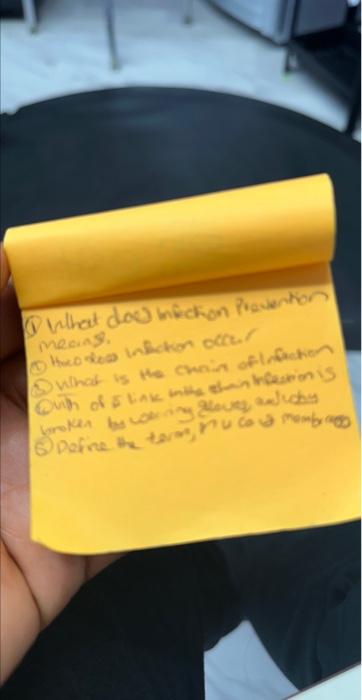 ① What does Infection Prevention
means.
② How does Infection occur
③ What is the chain of Infection
④ with of 5 link in the chain Infection is
broken by wearing gloves and why
⑤ Define the term, Mucous membranes